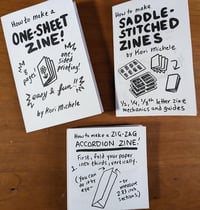 How to make a
ONE-SHEET
ZINE!
8
pages
one-
sided
printing!
easy & fun!!
by Kori Michele
How to make
SADDLE-
STITCHED
ZINES
by Kori Michele
1/2, 1/4, 1/8th letter zine
mechanics and guides
How to make a ZIG-ZAG
ACCORDION ZINE!
First, fold your paper
into thirds, vertically.
1.
(You can
do it by
eye
- or
measure
2.83 inch
sections.)